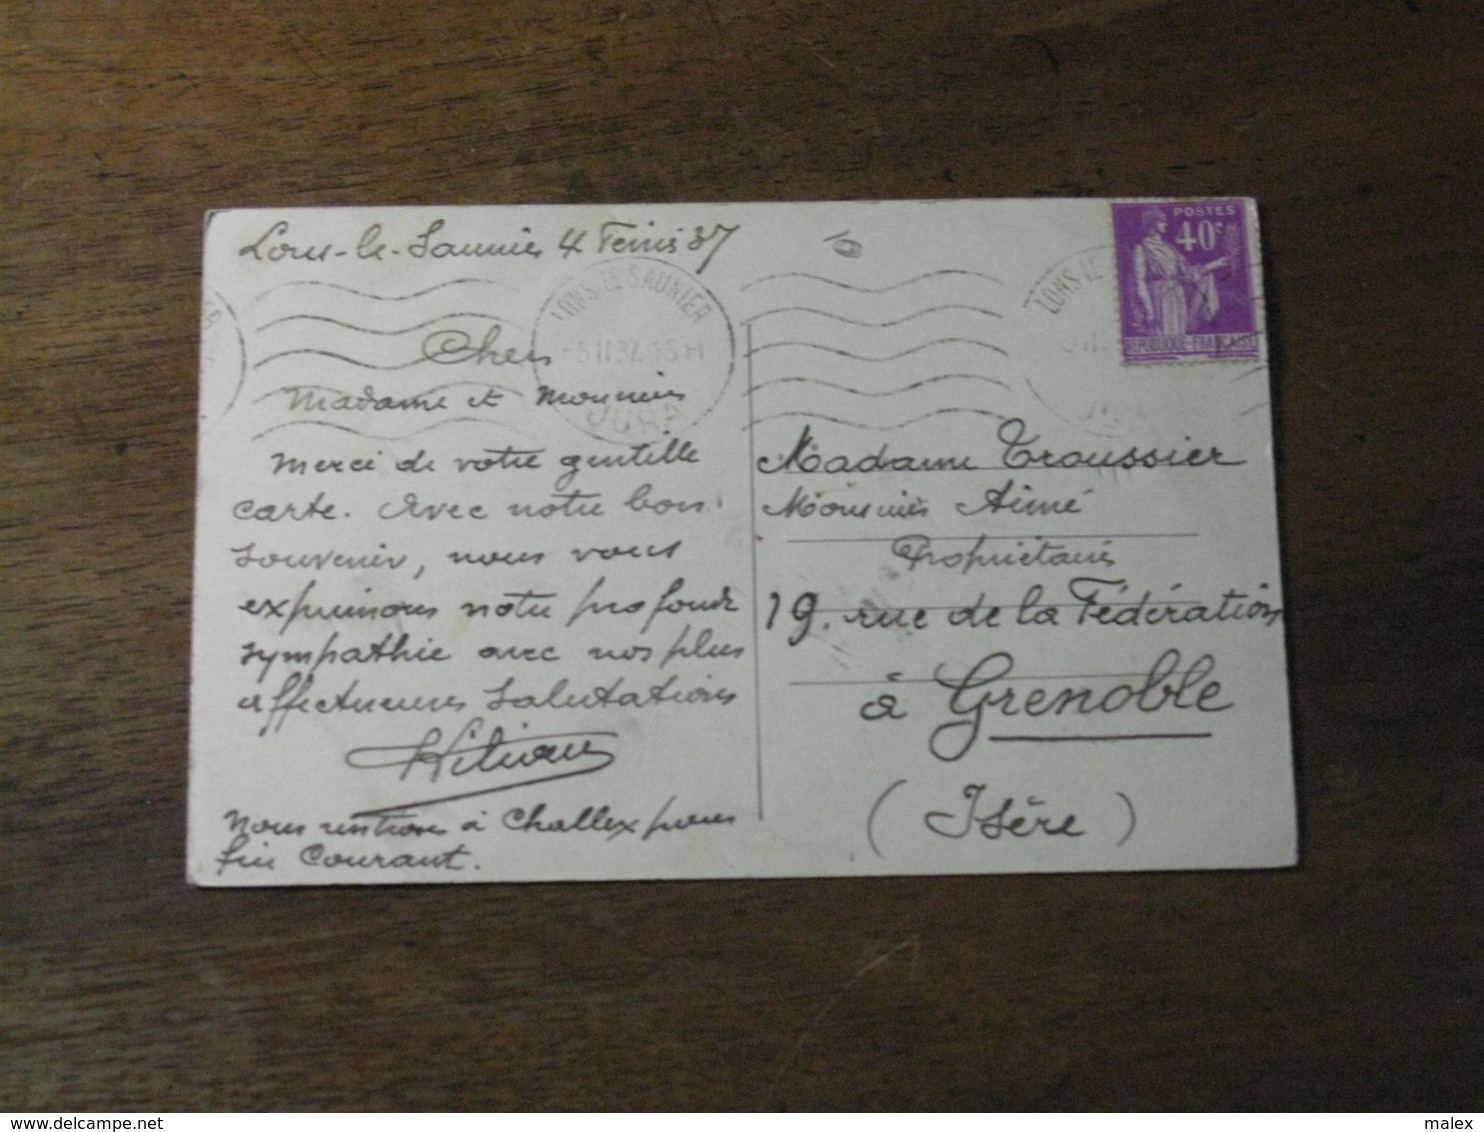 Lons-le-Saunier 4 Fév 37
LONS-LE-SAUNIER
-5 II 37. 15 H
JURA
Chers
Madame et Monsieur
Merci de votre gentille
carte. Avec notre bon
souvenir, nous vous
exprimons notre profonde
sympathie avec nos plus
affectueuses salutations
Nous rentrons à Challex pour
fin courant.
POSTES
40c
REPUBLIQUE-FRANÇAISE
LONS-LE
Madame Troussier
Monsieur Aimé
Propriétaire
19. rue de la Fédération
à Grenoble
(Isère)
malex
www.delcampe.net